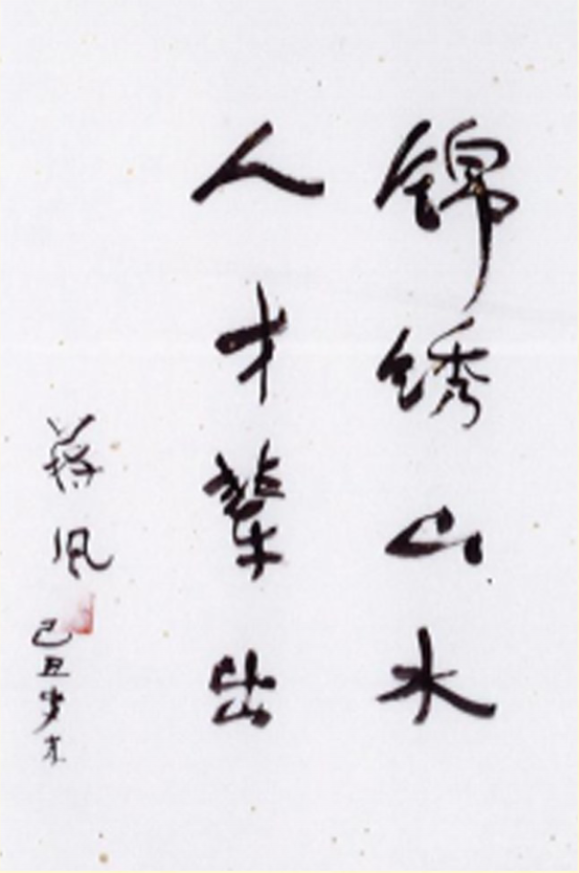 锦绣山水
人才辈出
蒋风
己丑岁末